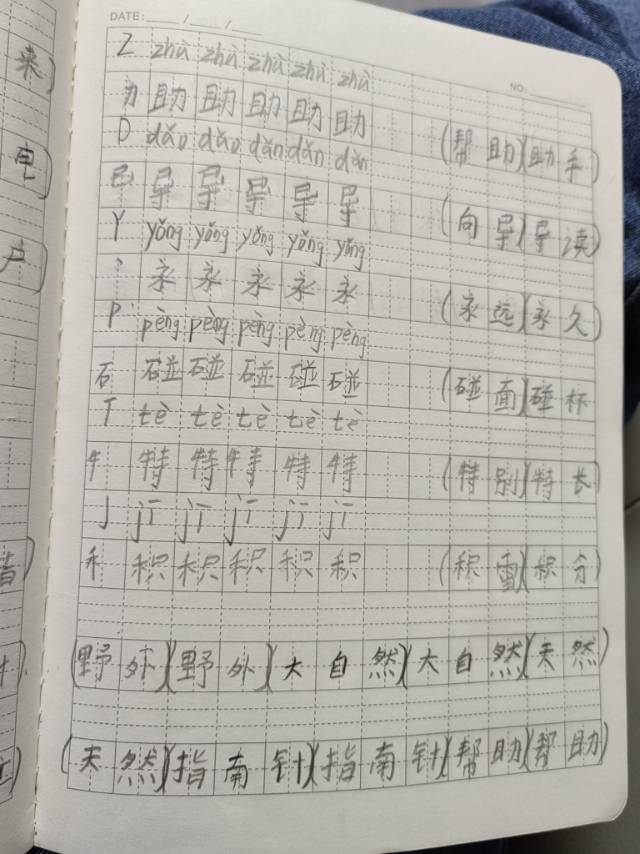 DATE: / /
NO:
Z zhù zhù zhù zhù zhù
力 助 助 助 助 助 (帮助)(助手)
D dǎo dǎo dǎn dǎn dǎn
巳 导 导 导 导 导 (向导)(导读)
Y yǒng yǒng yǒng yǒng yǒng
丶 永 永 永 永 永 (永远)(永久)
P pèng pèng pèng pèng pèng
石 碰 碰 碰 碰 碰 (碰面)(碰杯)
T tè tè tè tè tè
牛 特 特 特 特 特 (特别)(特长)
J jī jī jī jī jī
禾 积 积 积 积 积 (积雪)(积分)
(野外)(野外)(大自然)(大自然)(天然)
(天然)(指南针)(指南针)(帮助)(帮助)
来)
电)
户)